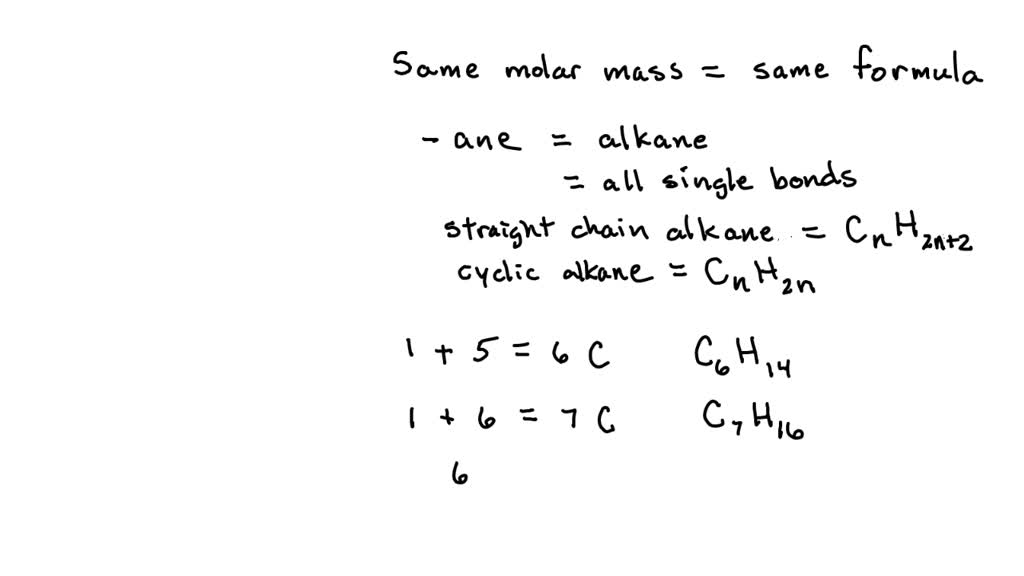 Same molar mass = same formula
- ane = alkane
= all single bonds
straight chain alkane = CₙH₂ₙ₊₂
cyclic alkane = CₙH₂ₙ
1 + 5 = 6 C C₆H₁₄
1 + 6 = 7 C C₇H₁₆
6